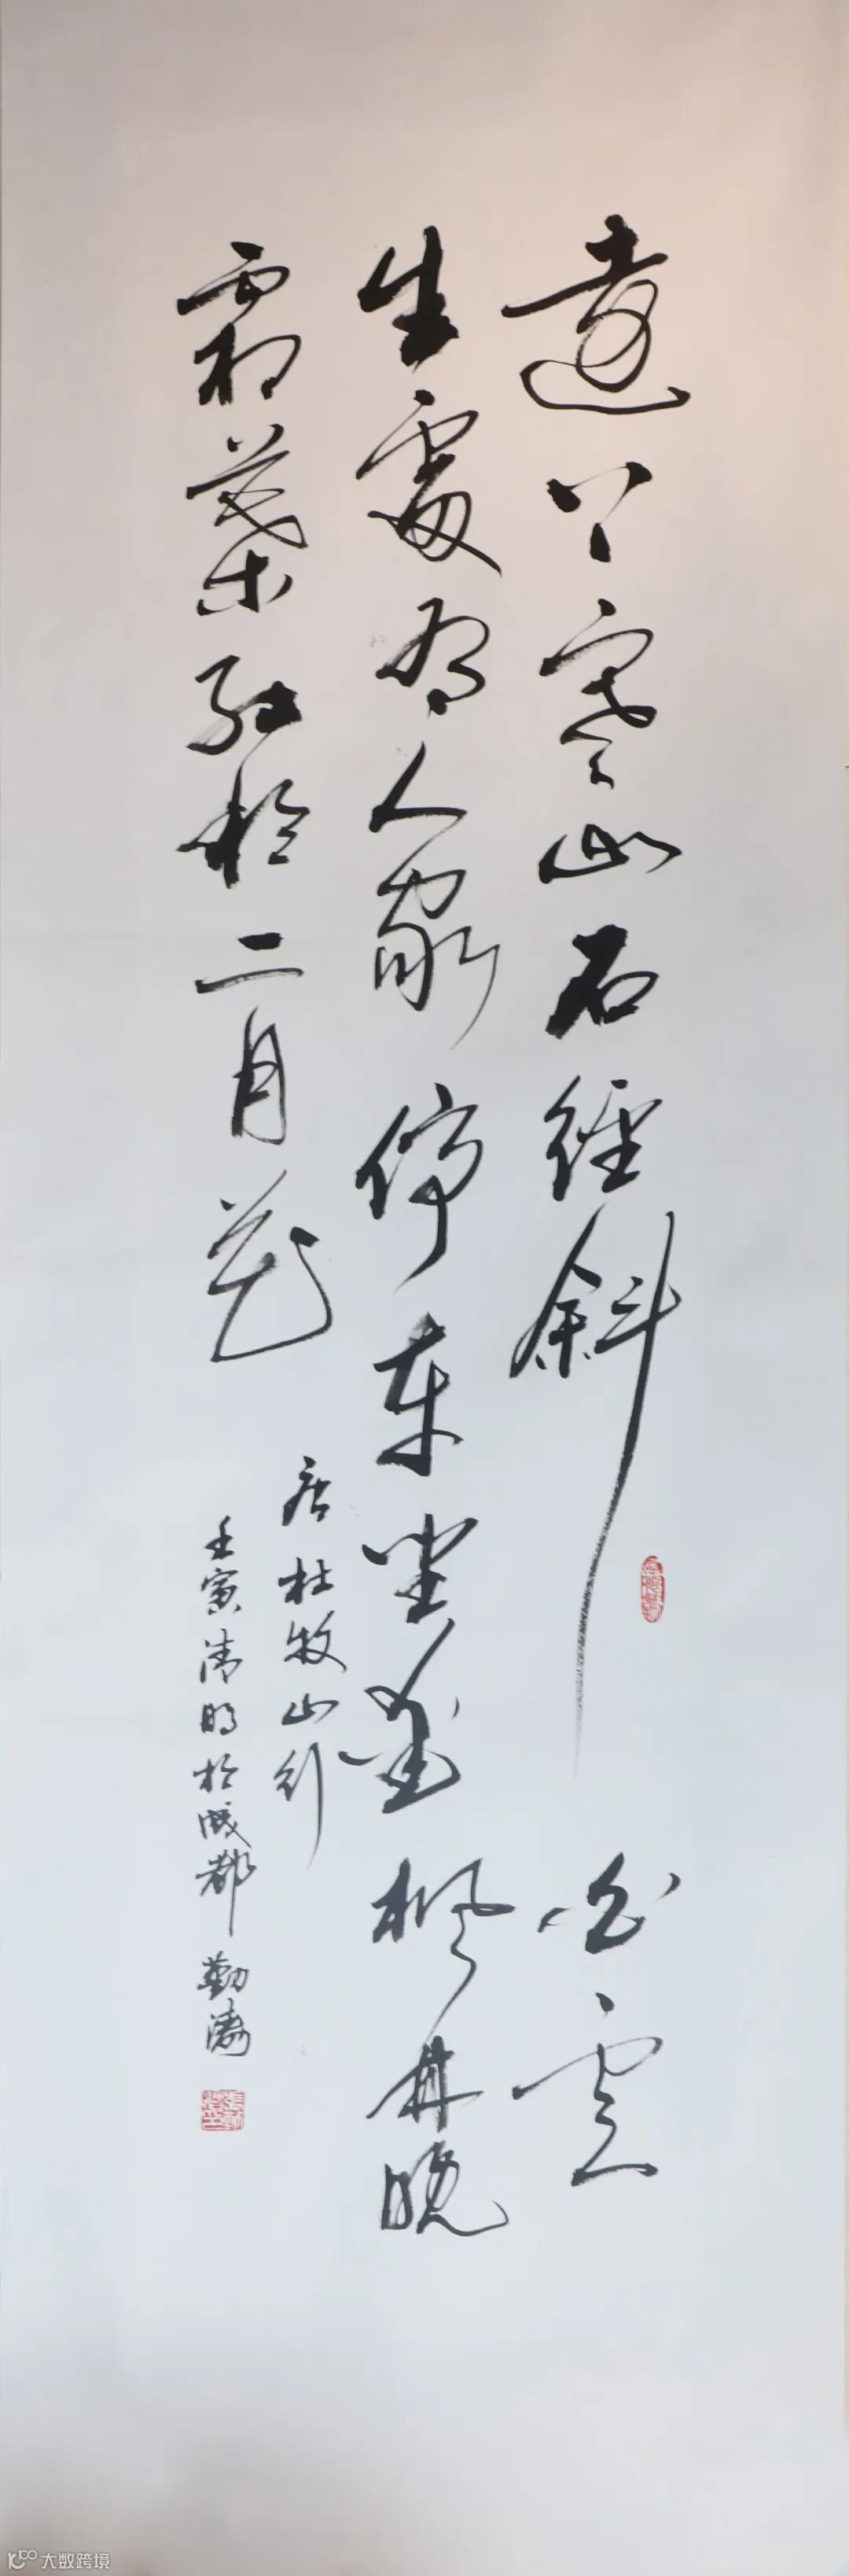 遠上寒山石經斜白雲
生處有人家停車坐愛楓林晚
霜葉紅於二月花
唐杜牧山行
壬寅清明於成都勤濤
大数跨境